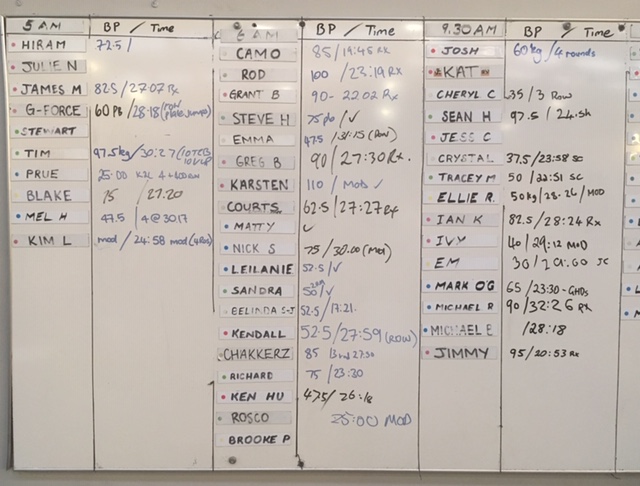 5 AM BP / Time
HIRAM 72.5 /
JULIE N
JAMES M 82.5 / 27:07 Rx
G-FORCE 60 PB / 28:18 (row
STEWART
TIM 97.5kg / 30:27
PRUE 25:00
BLAKE 75 / 27:20
MEL H 47.5 / 4 @ 30:17
KIM L mod / 24:58 mod
6 AM BP / Time
CAMO 85 / 19:45 Rx
ROD 100 / 23:19 Rx
GRANT B 90 - 22:02 Rx
STEVE H 75 pb / ✓
EMMA 47.5 / (Row)
GREG B 90 / 27:30 Rx.
KARSTEN 110 / Mod ✓
COURTS 62.5 / 27:27 Rx
MATTY ✓
NICK S 75 / 30:00 (Mod)
LEILANIE 52.5 / ✓
SANDRA 50 / ✓
BELINDA S-J 52.5 / 17:21.
KENDALL 52.5 / 27:59 (ROW)
CHAKKERZ 85 27:50
RICHARD 75 / 23:30
KEN HU 47.5 / 26:18
ROSCO 25:00 MOD
BROOKE P
9.30 AM BP / Time
JOSH 60kg / 4 rounds
KAT
CHERYL C 35 / 3 Row
SEAN H 97.5 /
JESS C
CRYSTAL 37.5 / 23:58 SC
TRACEY M 50 / 22:51 SC
ELLIE R. 50kg / / MOD
IAN K 82.5 / 28:24 Rx
IVY 40 / 29:12 MOD
EM 30 /
MARK O'G 65 / 23:30 - GHDs
MICHAEL R 90 / 32:26 Rx
MICHAEL B / 28:18
JIMMY 95 / 20:53 Rx